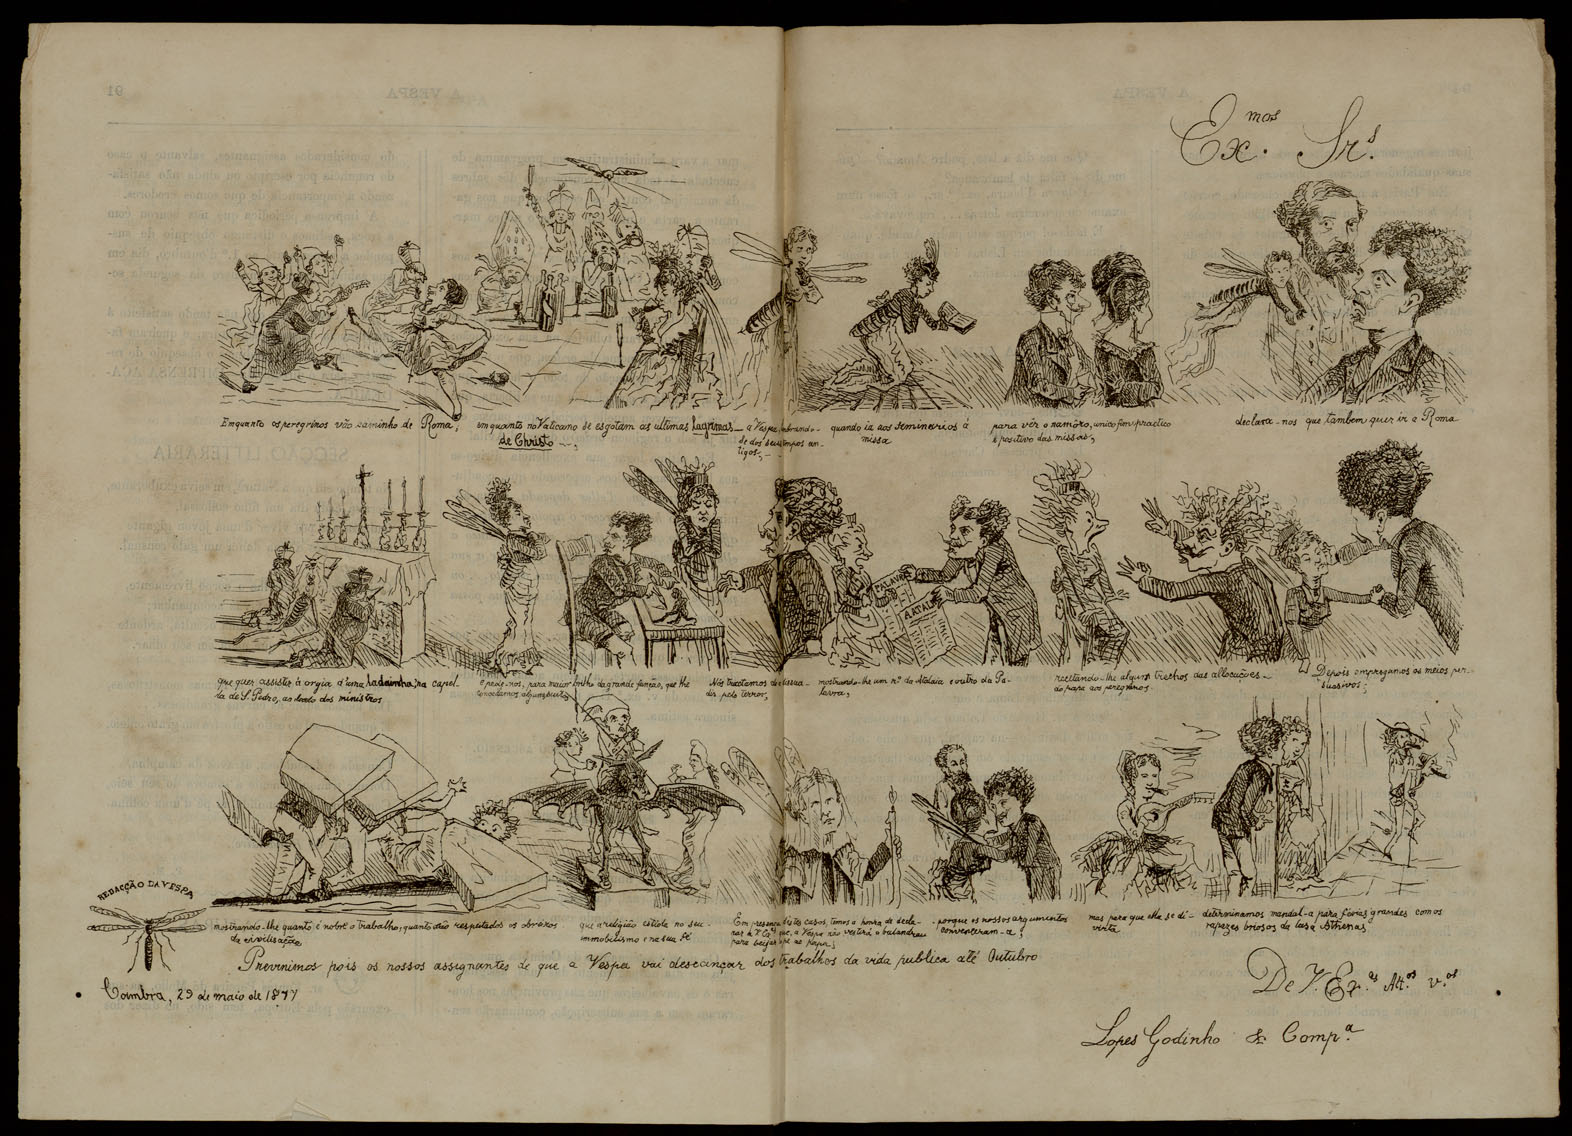 Ex.mos Srs.
Emquanto os peregrinos vão caminho de Roma;
emquanto no Vaticano se esgotam as ultimas lagrimas
de Christo
a Vespa lembrando-
se dos seus tempos an-
tigos;
quando ia aos seminarios á
missa
para vêr o namôro, unico fim practico
e positivo das missas;
declara-nos que tambem quer ir a Roma
que quer assistir á orgia d'uma ladainha, na capel-
la de S. Pedro, ao lado dos ministros
E pede-nos, para maior brilho da grande funcção, que lhe
Nós tractamos de dissua-
dir pelo terror;
mostrando-lhe um n.º da Nação e outro da Pa-
lavra;
PALAVRA
A NAÇÃO
recitando-lhe alguns trechos das allocuções
do papa aos peregrinos
Depois empregamos os meios per-
suasivos;
mostrando-lhe quanto é nobre o trabalho, quanto são respeitados os obreiros
da civilisação
que a religião estiola no seu
immobilismo e na sua fé
Em presença d'estes casos, temos a honra de decla-
rar a V. Ex.as que, a Vespa não vestirá o balandrau
para beijar o pé ao papa;
porque os nossos argumentos
converteram-a;
mas para que ella se di-
virta
determinamos mandal-a para férias grandes com os
rapazes briosos da casa Athenas
REDACÇÃO DA VESPA
Prevenimos pois os nossos assignantes de que a Vespa vai descançar dos trabalhos da vida publica até Outubro
Coimbra, 29 de maio de 1877
De V. Ex.as Att.os V.os
Lopes Godinho & Comp.a